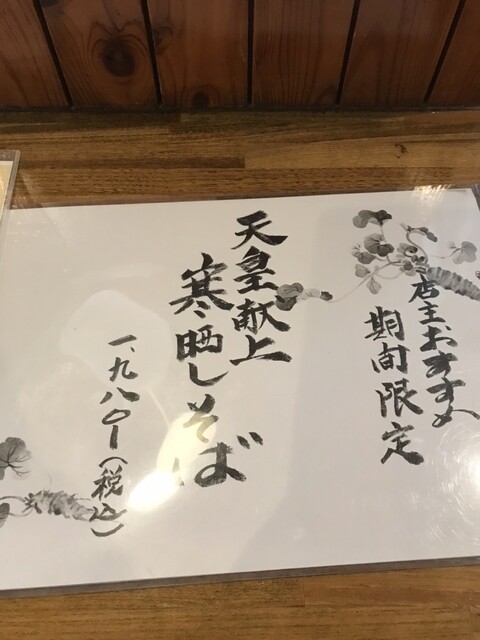 当店主おすすめ
期間限定
天皇献上
寒晒しそば
一、九八〇ー(税込)